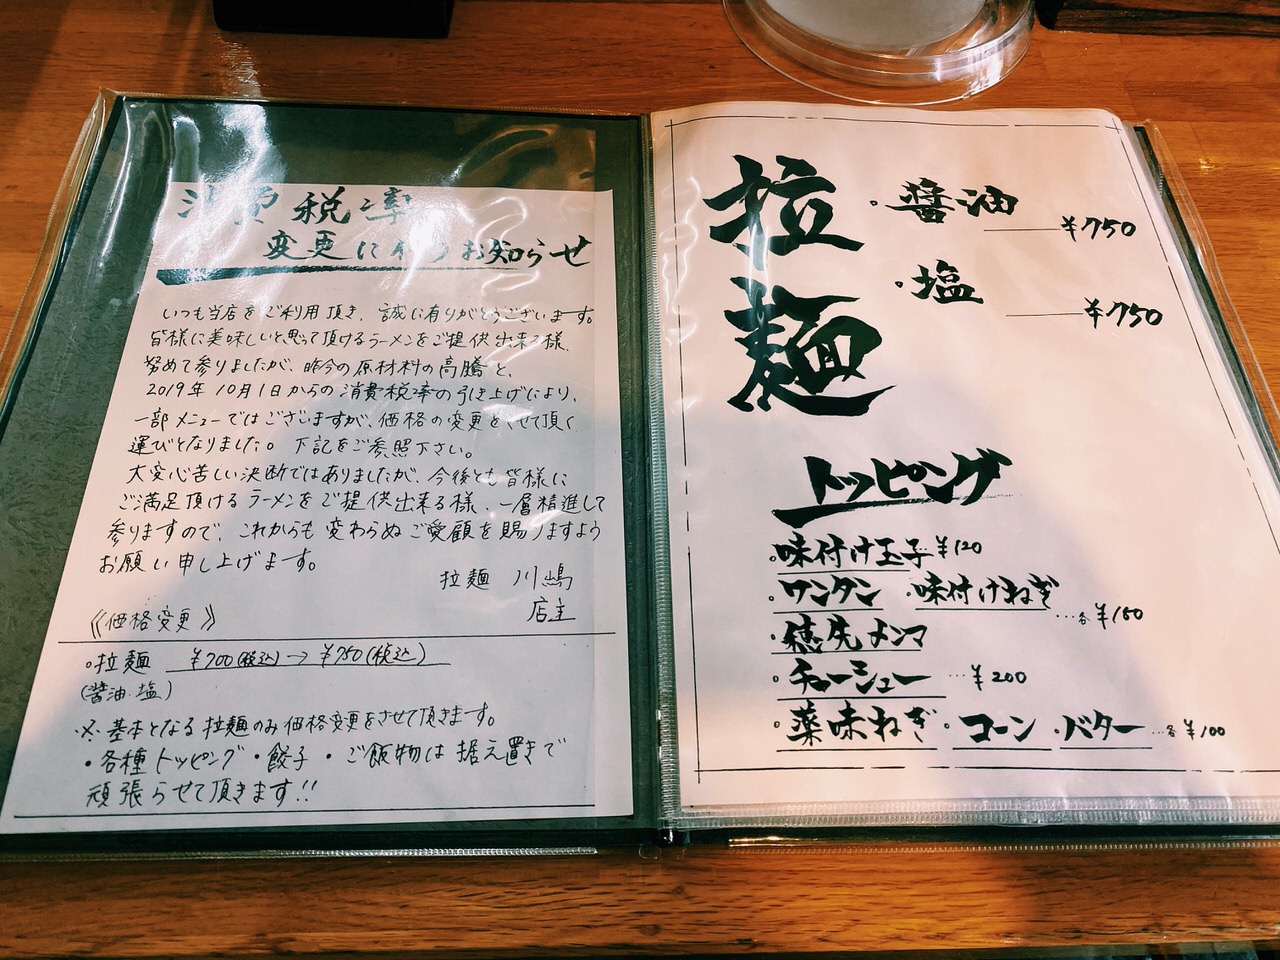 消費税率
変更に伴うお知らせ
いつも当店をご利用頂き、誠に有りがとうございます。
皆様に美味しいと思って頂けるラーメンをご提供出来る様、
努めて参りましたが、昨今の原材料の高騰と、
2019年10月1日からの消費税率の引き上げにより、
一部メニューではございますが、価格の変更をさせて頂く
運びとなりました。下記をご参照下さい。
大変心苦しい決断ではありましたが、今後とも皆様に
ご満足頂けるラーメンをご提供出来る様、一層精進して
参りますので、これからも変わらぬご愛顧を賜りますよう
お願い申し上げます。
拉麺 川嶋
店主
《価格変更》
・拉麺 ¥700(税込)→¥750(税込)
(醤油・塩)
※基本となる拉麺のみ価格変更をさせて頂きます。
・各種トッピング・餃子・ご飯物は据え置きで
頑張らせて頂きます!!
拉麺
・醤油 ¥750
・塩 ¥750
トッピング
・味付け玉子 ¥120
・ワンタン ・味付けねぎ
・穂先メンマ …各¥150
・チャーシュー …¥200
・薬味ねぎ ・コーン ・バター …各¥100